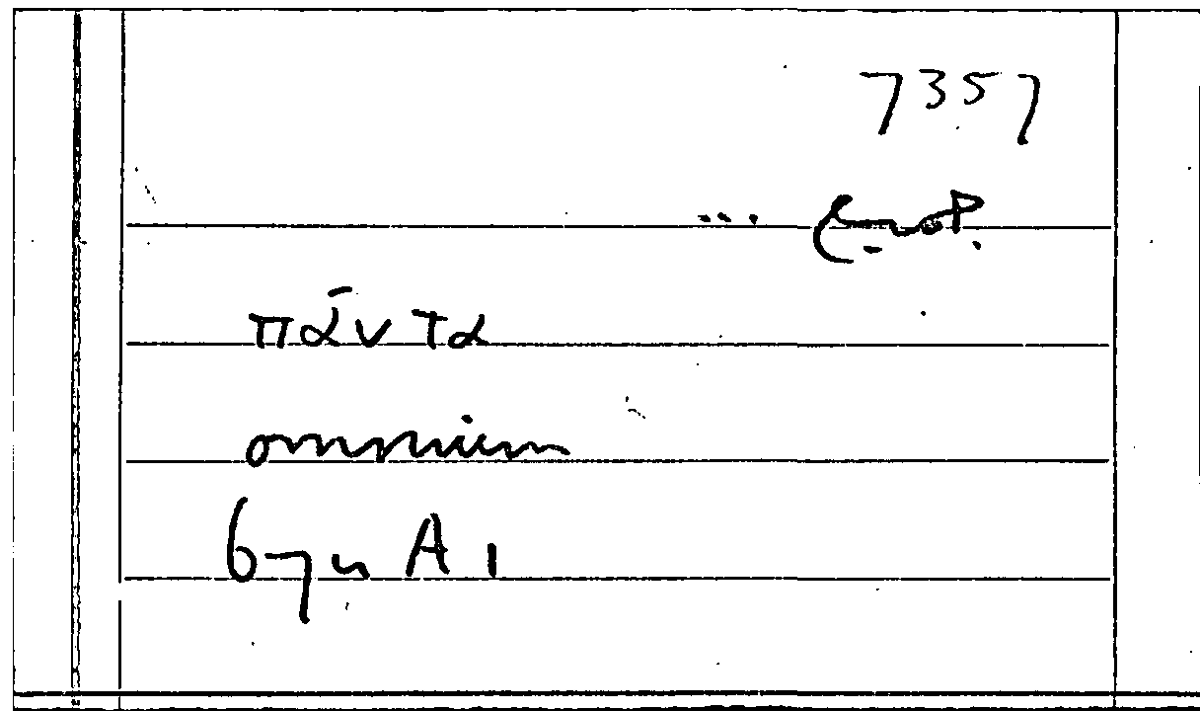 7357
πάντα
omnium
67n A 1